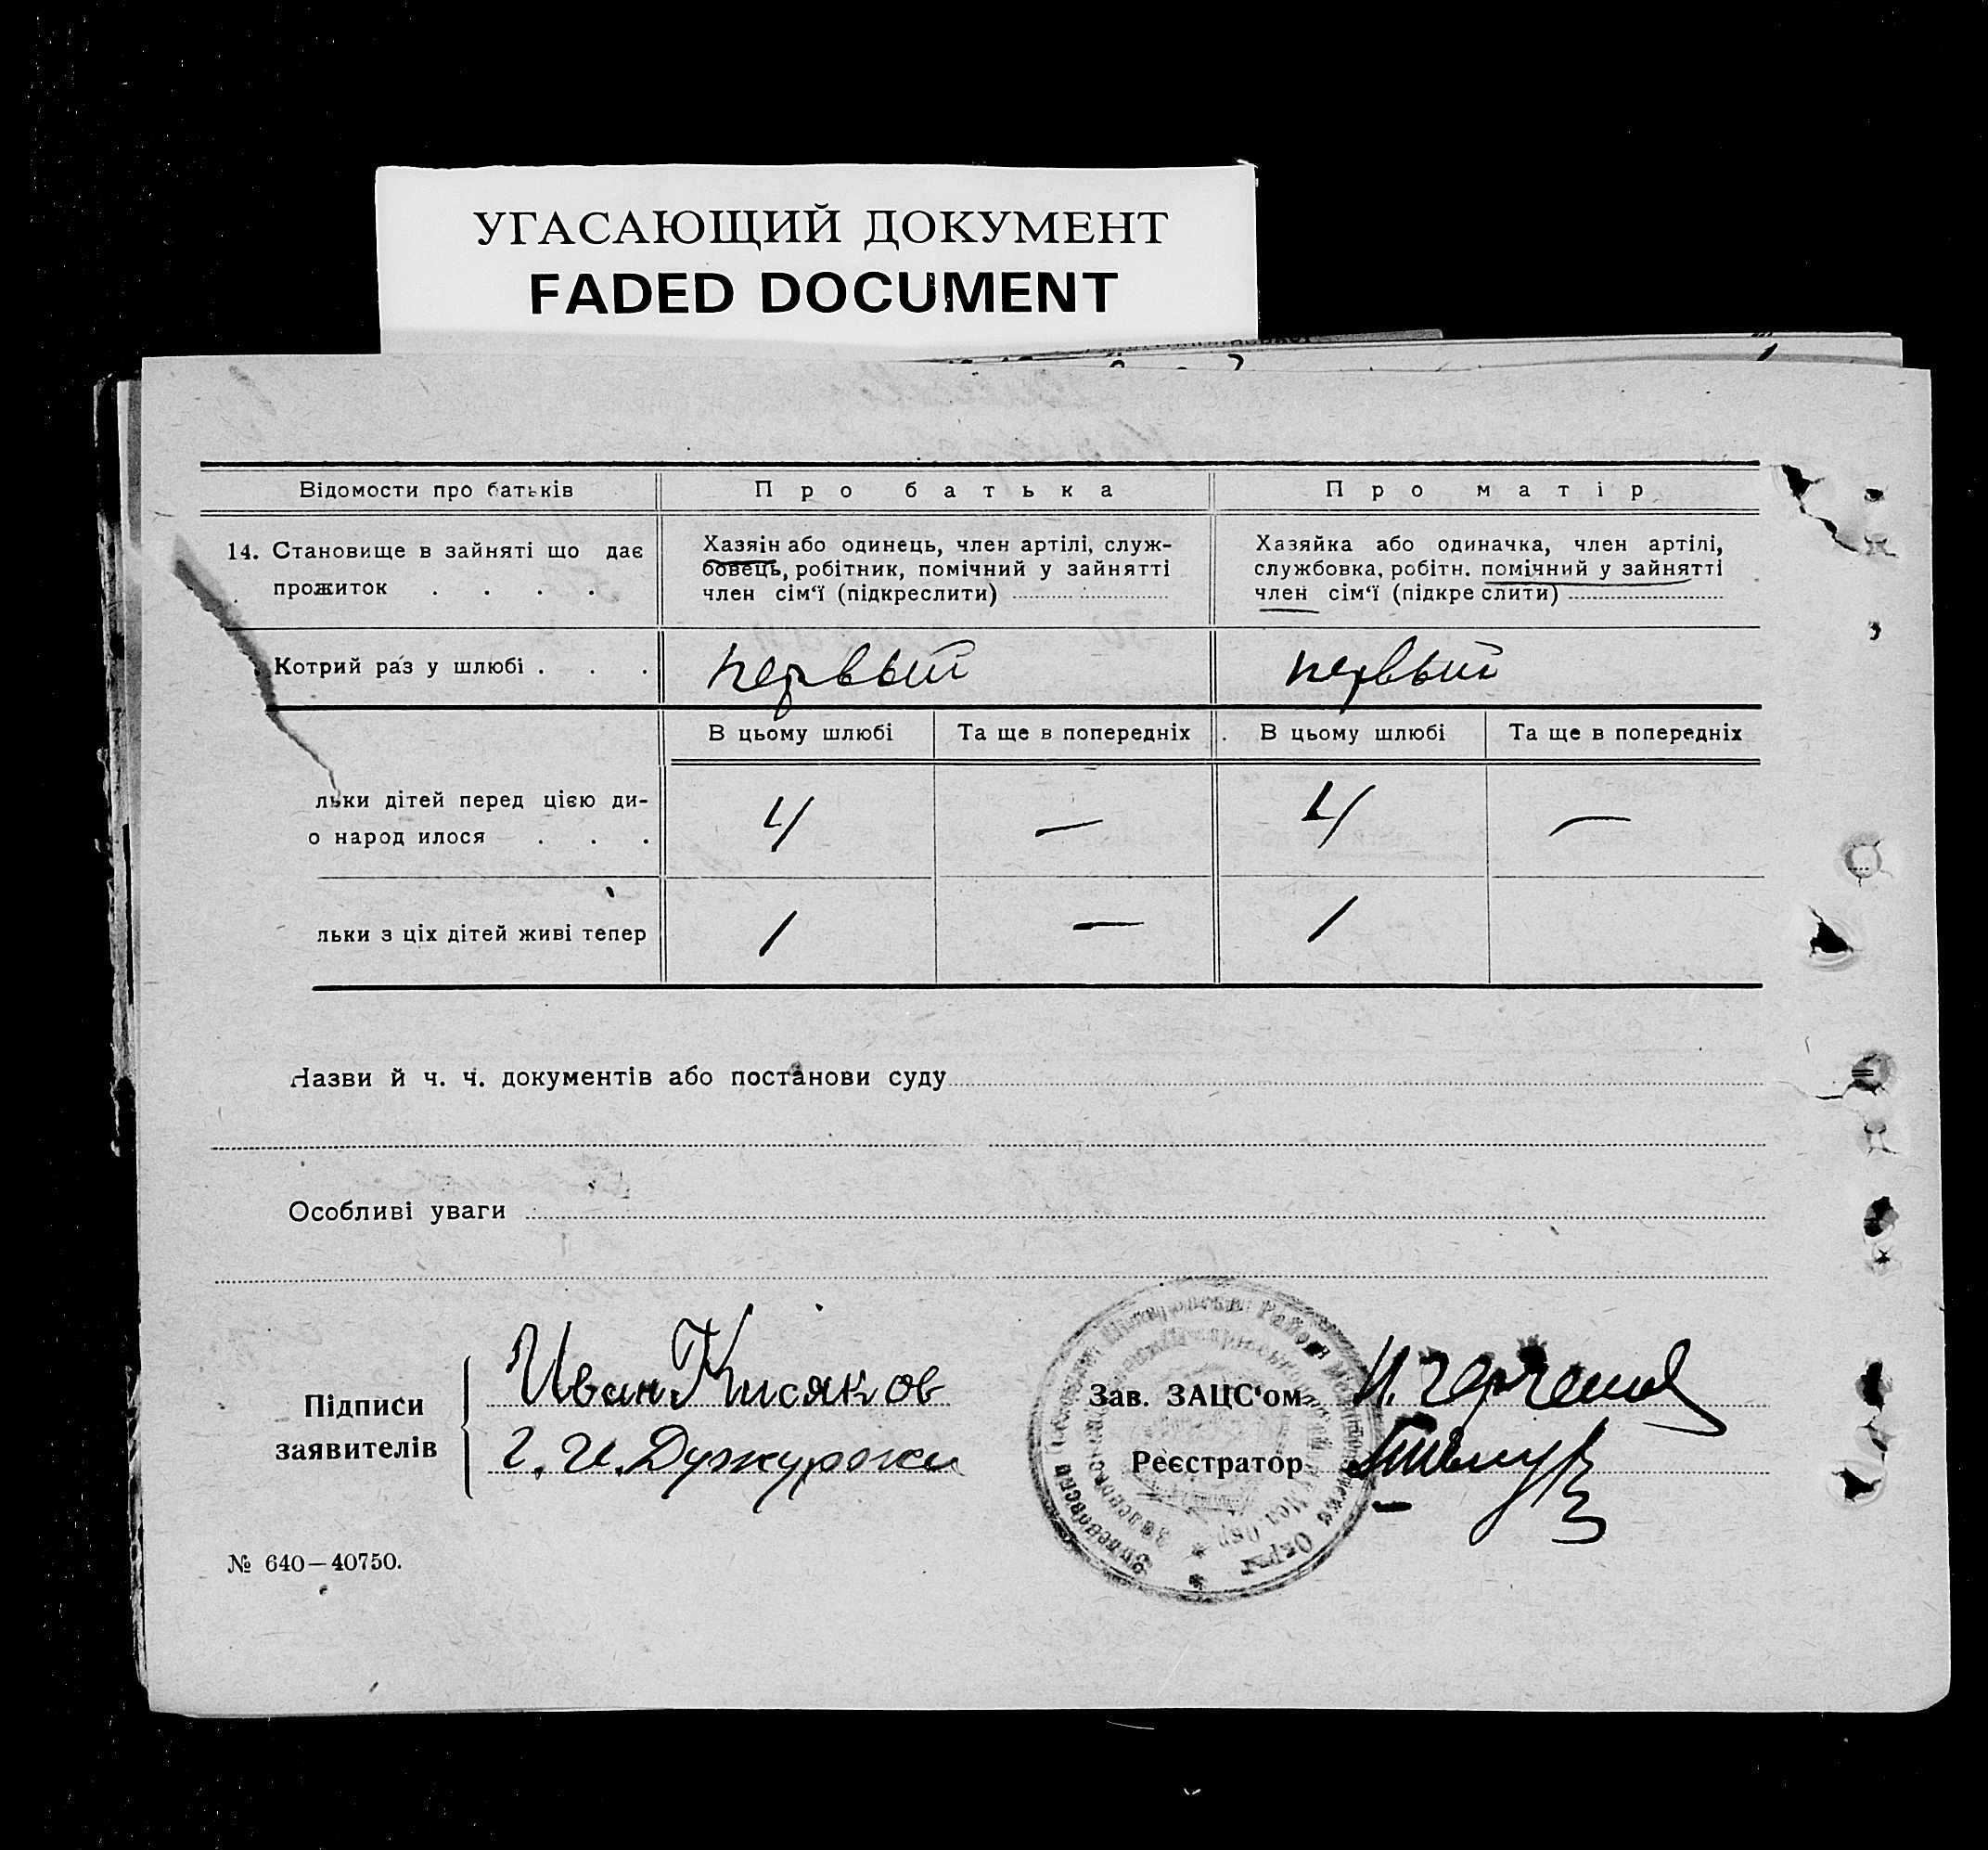 УГАСАЮЩИЙ ДОКУМЕНТ
FADED DOCUMENT
Відомости про батьків
Про батька
Про матір
14. Становище в зайняті що дає
прожиток . . . .
Хазяін або одинець, член артілі, служ-
бовець, робітник, помічний у зайнятті
член сім‘ї (підкреслити)
Хазяйка або одиначка, член артілі,
службовка, робітн. помічний у зайнятті
член сім‘ї (підкре слити)
Котрий раз у шлюбі . . .
первый
первый
В цьому шлюбі
Та ще в попередніх
В цьому шлюбі
Та ще в попередніх
льки дітей перед цією ди-
о народ илося . . .
4
—
4
—
льки з ціх дітей живі тепер
1
—
1
Назви й ч. ч. документів або постанови суду
Особливі уваги
Підписи
заявителів
Иван Кисяков
Г. И. Дужуроки
Зав. ЗАЦС‘ом
Реєстратор
Района
Окр
№ 640—40750.